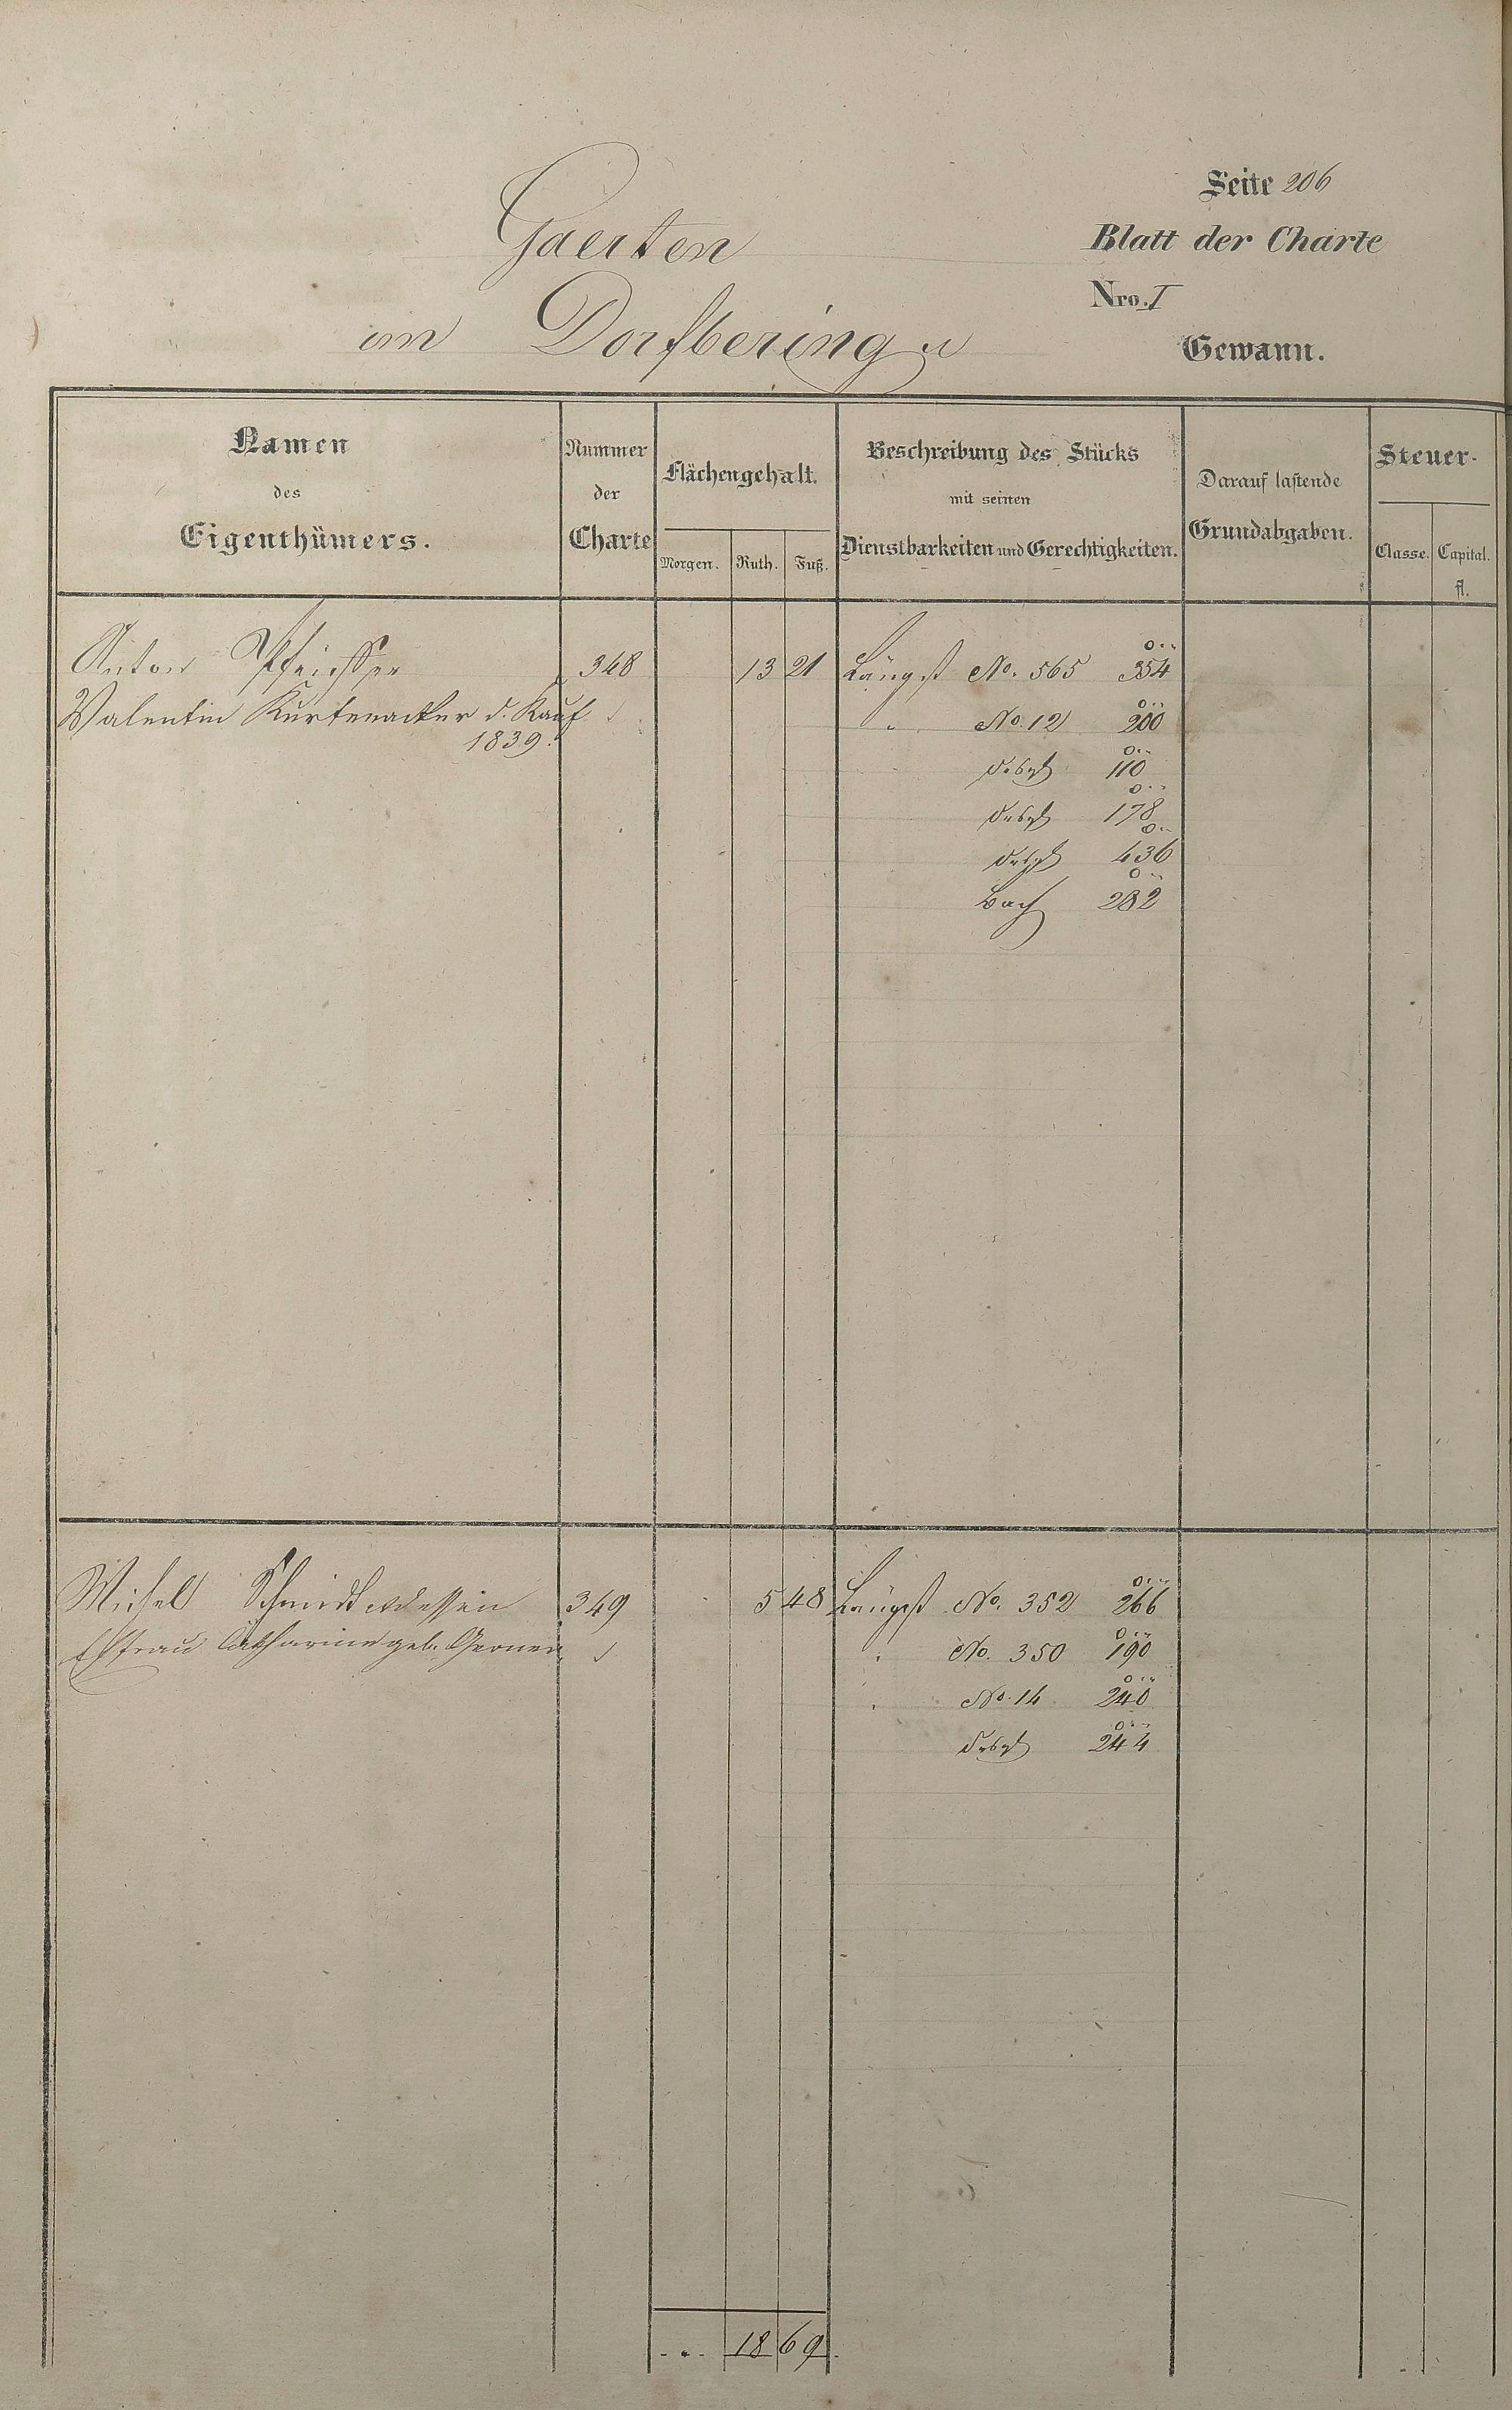 Seite 206
Gaerten
Blatt der Charte
Nro. I
im Dorfbering
Gewann.
Namen des Eigenthümers.
Nummer der Charte
Flächengehalt.
Morgen. Ruth. Fuß.
Beschreibung des Stücks mit seinen Dienstbarkeiten und Gerechtigkeiten.
Darauf lastende Grundabgaben.
Steuer-
Classe. Capital. fl.
Anton 348 13 21 Längst No. 565 354
Valentin Kurtenacker d. Kauf " No. 12 200
1839.
desgl 110
desgl 178
desgl 436
Bach 282
Michel Schmidt dessen 349 5 48 Längst No. 352 266
Ehfrau Catharina geb. Gerner " No. 350 190
" No. 14 240
desgl 244
18 69